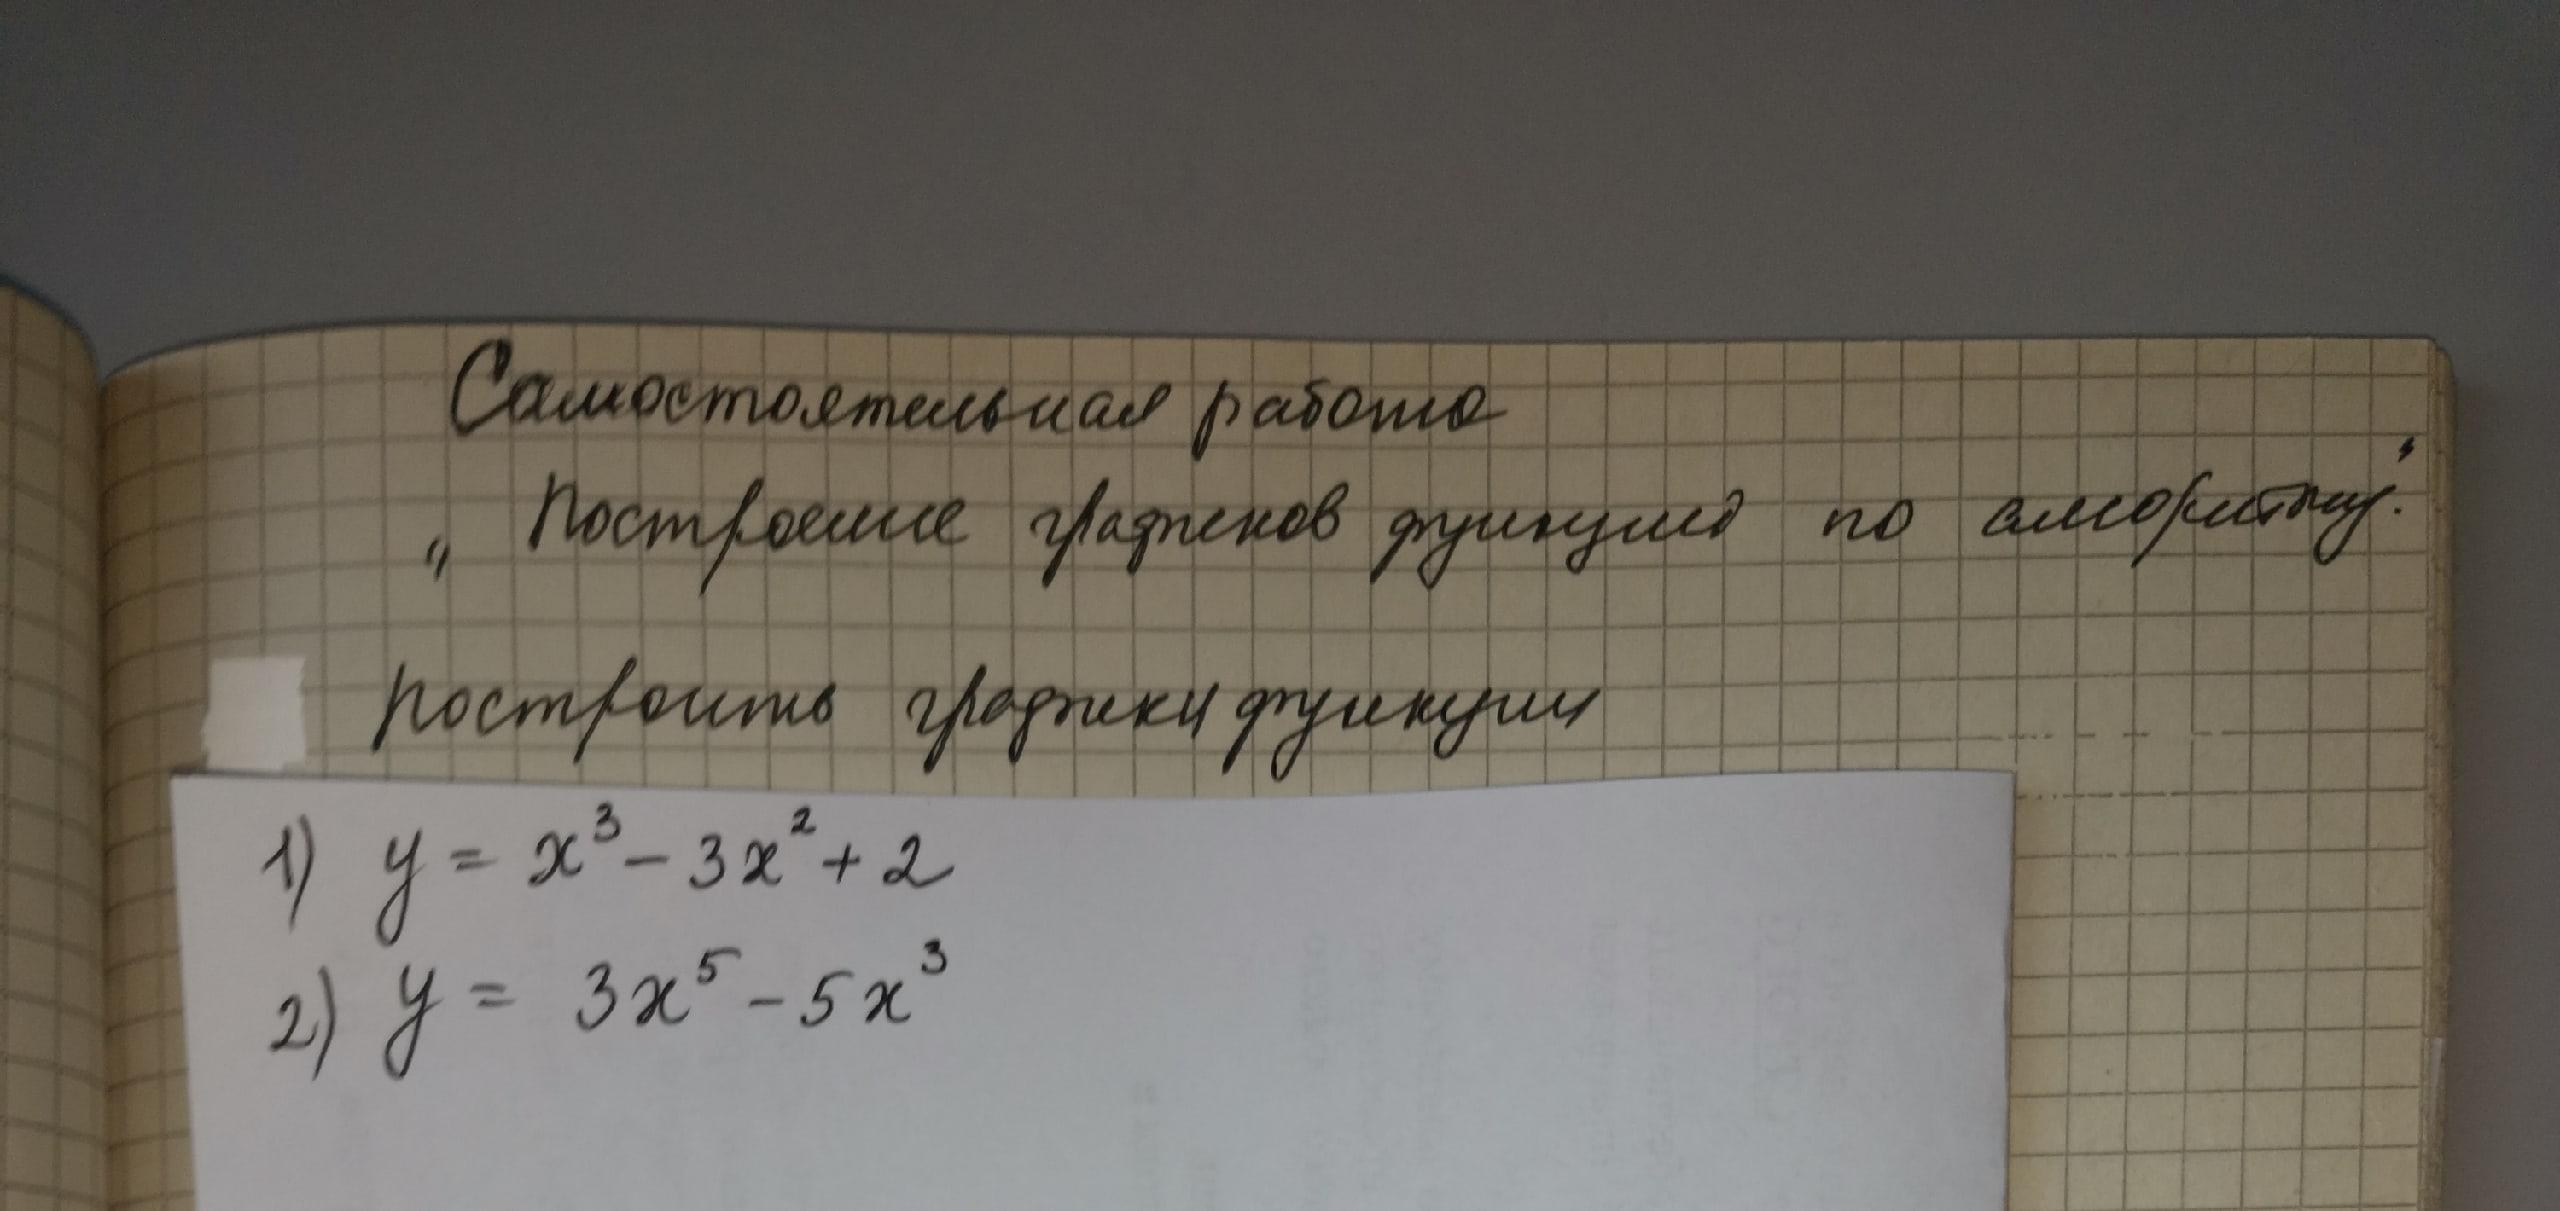 Самостоятельная работа
„ Построение графиков функций по алгоритму."
построить графики функции
1) y = x³ - 3x² + 2
2) y = 3x⁵ - 5x³